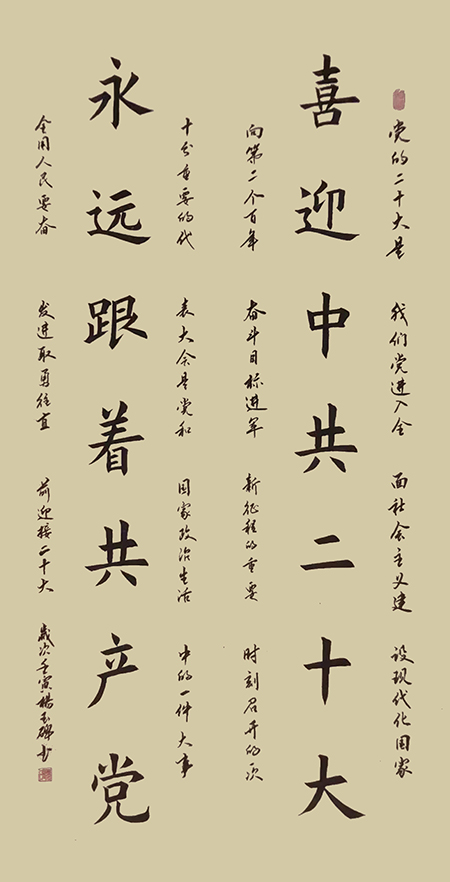 党的二十大是我们党进入全面社会主义建设现代化国家
喜迎中共二十大
向第二个百年奋斗目标进军新征程的重要时刻召开的次
十分重要的代表大会是党和国家政治生活中的一件大事
永远跟着共产党
全国人民要奋发进取勇往直前迎接二十大 歲次壬寅楊玉书